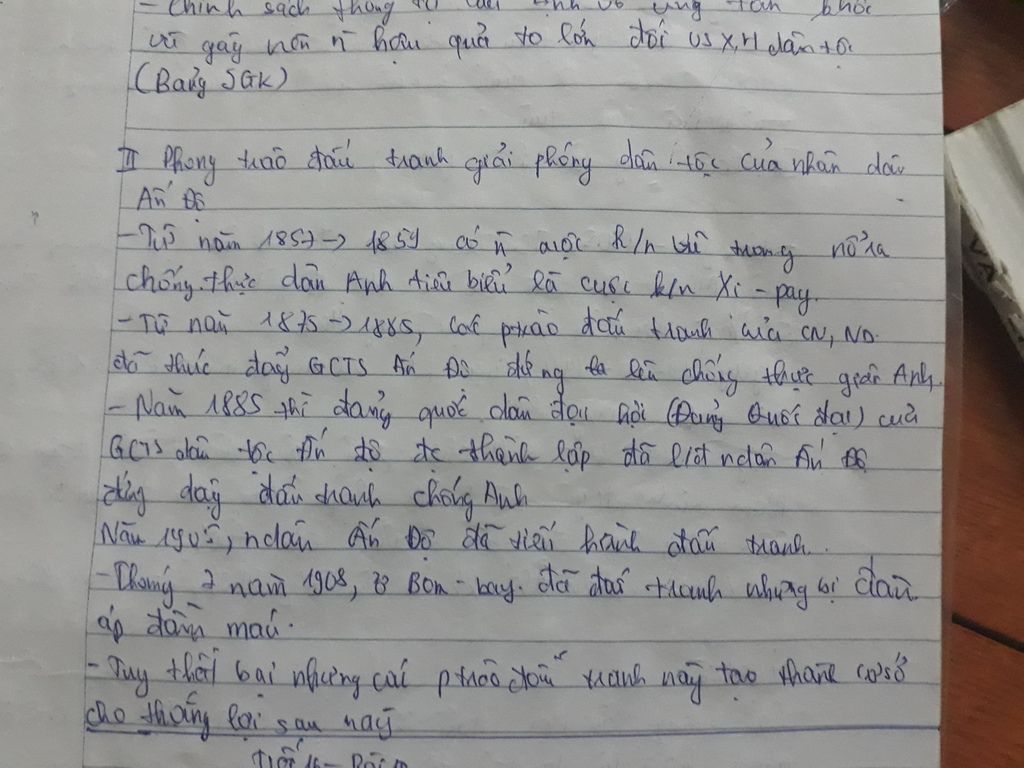 - Chính sách thống trị của Anh vô cùng tàn khốc
và gây nên n hậu quả to lớn đối vs X,H dân tộc
(Bảng SGK)
II Phong trào đấu tranh giải phóng dân tộc của nhân dân
Ấn Độ
- Từ năm 1857 → 1859 có n cuộc k/n vũ trang nổ ra
chống thực dân Anh tiêu biểu là cuộc k/n Xi - pay.
- Từ năm 1875 → 1885, các ptrào đấu tranh của CN, ND
đã thúc đẩy GCTS Ấn Độ đứng ra lên chống thực giân Anh
- Năm 1885 thì đảng quốc dân đại hội (Đảng Quốc đại) của
GCTS dân tộc Ấn độ đc thành lập đã ndân Ấn Độ
đứng dậy đấu tranh chống Anh
Năm 1905, ndân Ấn Độ đã tiến hành đấu tranh.
- Tháng 7 năm 1908, ở Bom - bay đã đấu tranh nhưng bị đàn
áp đẫm máu.
- Tuy thất bại nhưng các ptrào đấu tranh này tạo thành cơ sở
cho thắng lợi sau này
Tiết 16 -